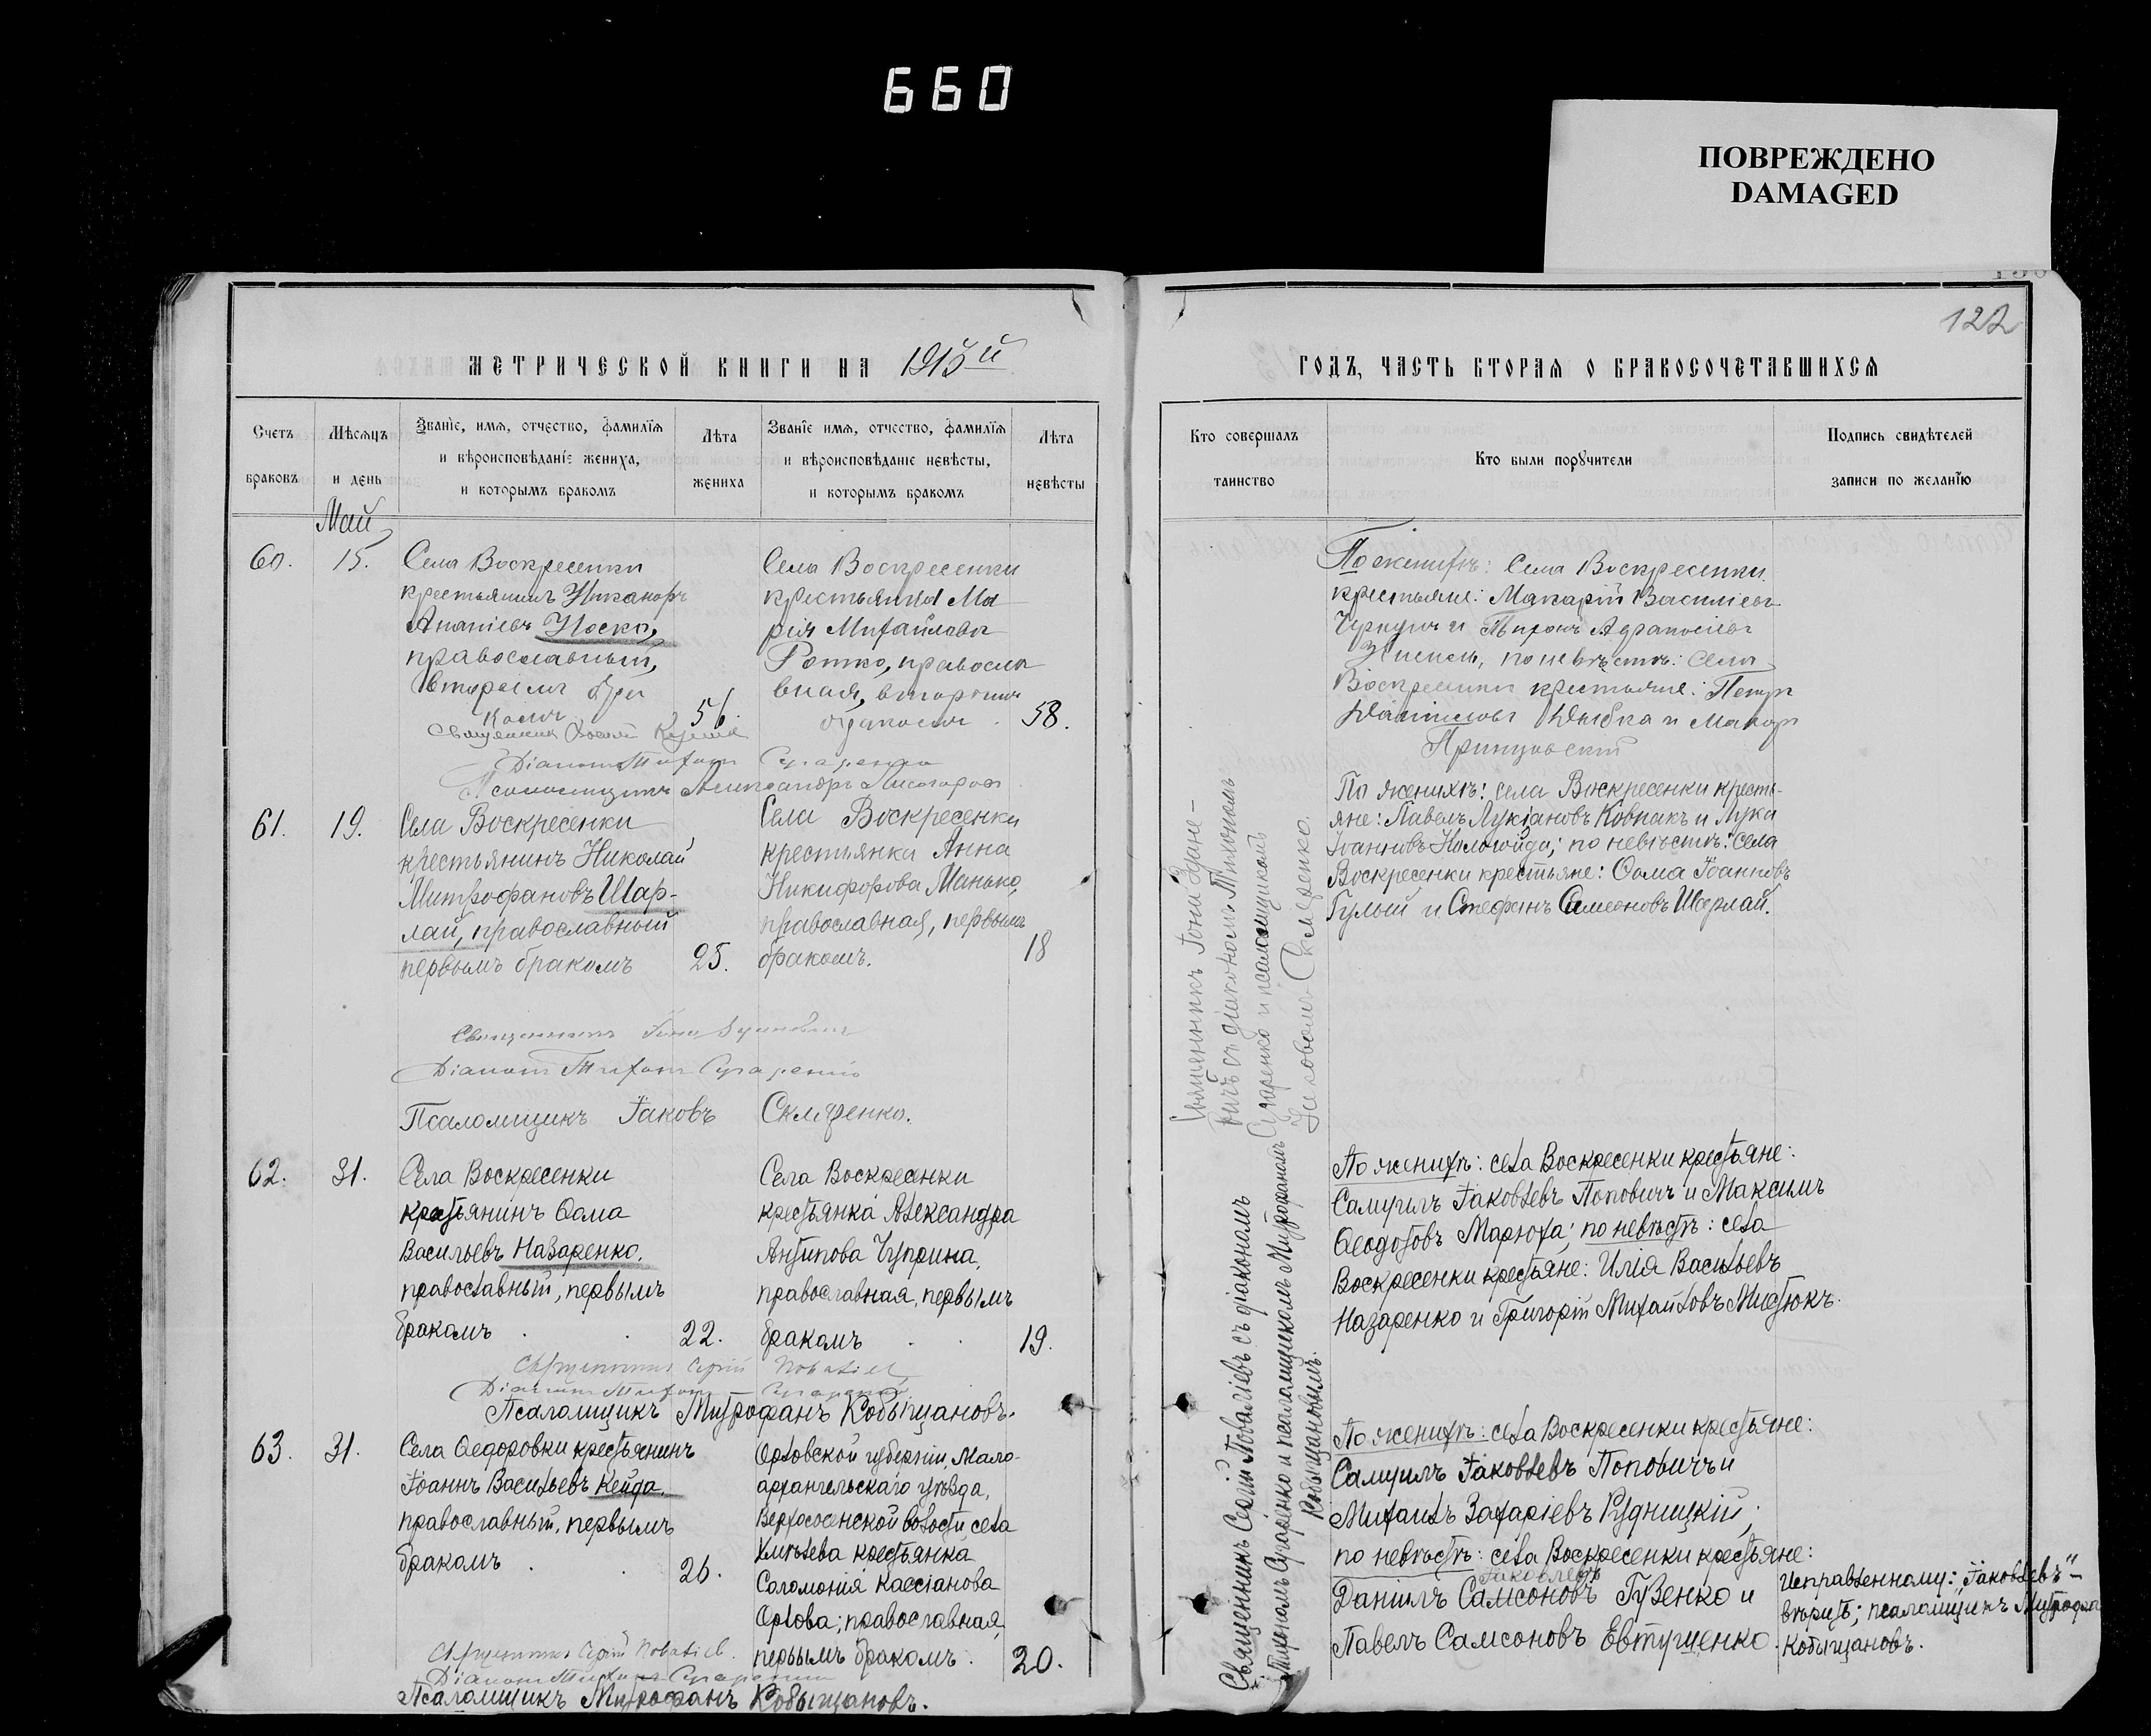 660
ПОВРЕЖДЕНО
DAMAGED
122
МЕТРИЧЕСКОЙ КНИГИ НА 1913й
Счетъ браковъ
Мѣсяцъ и день
Званіе, имя, отчество, фамилія
и вѣроисповѣданіе жениха,
и которымъ бракомъ
Лѣта
жениха
Званіе имя, отчество, фамилія
и вѣроисповѣданіе невѣсты,
и которымъ бракомъ
Лѣта
невѣсты
Май
60. 15.
Села Воскресенки
крестьянинъ Никаноръ
Ананіевъ Носко,
православный,
вторымъ бра
комъ
56.
Села Воскресенки
крестьянка Ма
рія Михайлова
Ротко, правосла
вная, вторымъ
бракомъ
58.
Діаконъ Тихонъ Сугаренко
Псаломщикъ Александръ
61. 19.
Села Воскресенки
крестьянинъ Николай
Митрофановъ Шар-
лай, православный
первымъ бракомъ
25.
Села Воскресенки
крестьянка Анна
Никифорова Манько,
православная, первымъ
бракомъ.
18
Священникъ Іона
Діаконъ Тихонъ Сугаренко
Псаломщикъ Іаковъ Скляренко.
62. 31.
Села Воскресенки
крестьянинъ Ѳома
Васильевъ Назаренко,
православный, первымъ
бракомъ
22.
Села Воскресенки
крестьянка Александра
Антипова Чуприна,
православная, первымъ
бракомъ
19.
Священникъ Сергій
Діаконъ Тихонъ Сугаренко
Псаломщикъ Митрофанъ Кобыщановъ.
63. 31.
Села Ѳедоровки крестьянинъ
Іоаннъ Васильевъ Кейда,
православный, первымъ
бракомъ
26.
Орловской губерніи, Мало-
архангельскаго уѣзда,
Верхососенской волости села
Хмѣлева крестьянка
Соломонія Кассіанова
Орлова; православная,
первымъ бракомъ.
20.
Священникъ Сергій
Діаконъ Тихонъ Сугаренко
Псаломщикъ Митрофанъ Кобыщановъ.
ГОДЪ, ЧАСТЬ ВТОРАЯ О БРАКОСОЧЕТАВШИХСЯ
Кто совершалъ
таинство
Кто были поручители
Подпись свидѣтелей
записи по желанію
Священникъ Іона
съ діакономъ Тихономъ
Сугаренко и псаломщикомъ
Іаковомъ Скляренко.
Священникъ Сергій съ діакономъ
Тихономъ Сугаренко и псаломщикомъ Митрофаномъ
Кобыщановымъ.
По женихѣ: Села Воскресенки
крестьяне: Макарій Василіевъ
и Тихонъ
по невѣстѣ: Села
Воскресенки крестьяне: Петръ
Даниловъ и Макаръ
По женихѣ: села Воскресенки кресть-
яне: Павелъ Лукіановъ Ковпакъ и Лука
Іоанновъ по невѣстѣ: села
Воскресенки крестьяне: Ѳома Іоанновъ
Гулый и Стефанъ Симеоновъ Шарлай.
По женихѣ: села Воскресенки крестьяне:
Самуилъ Іаковлевъ Поповичъ и Максимъ
Ѳеодотовъ Марюха; по невѣстѣ: села
Воскресенки крестьяне: Илія Васильевъ
Назаренко и Григорій Михайловъ Мистюкъ.
По женихѣ: села Воскресенки крестьяне:
Самуилъ Іаковлевъ Поповичъ и
Михаилъ Захаріевъ Рудницкій;
по невѣстѣ: села Воскресенки крестьяне:
Іаковлевъ
Даніилъ Самсоновъ Гузенко и
Павелъ Самсоновъ Евтушенко.
Исправленному: "Іаковлевъ" –
вѣрить; псаломщикъ Митрофан
Кобыщановъ.